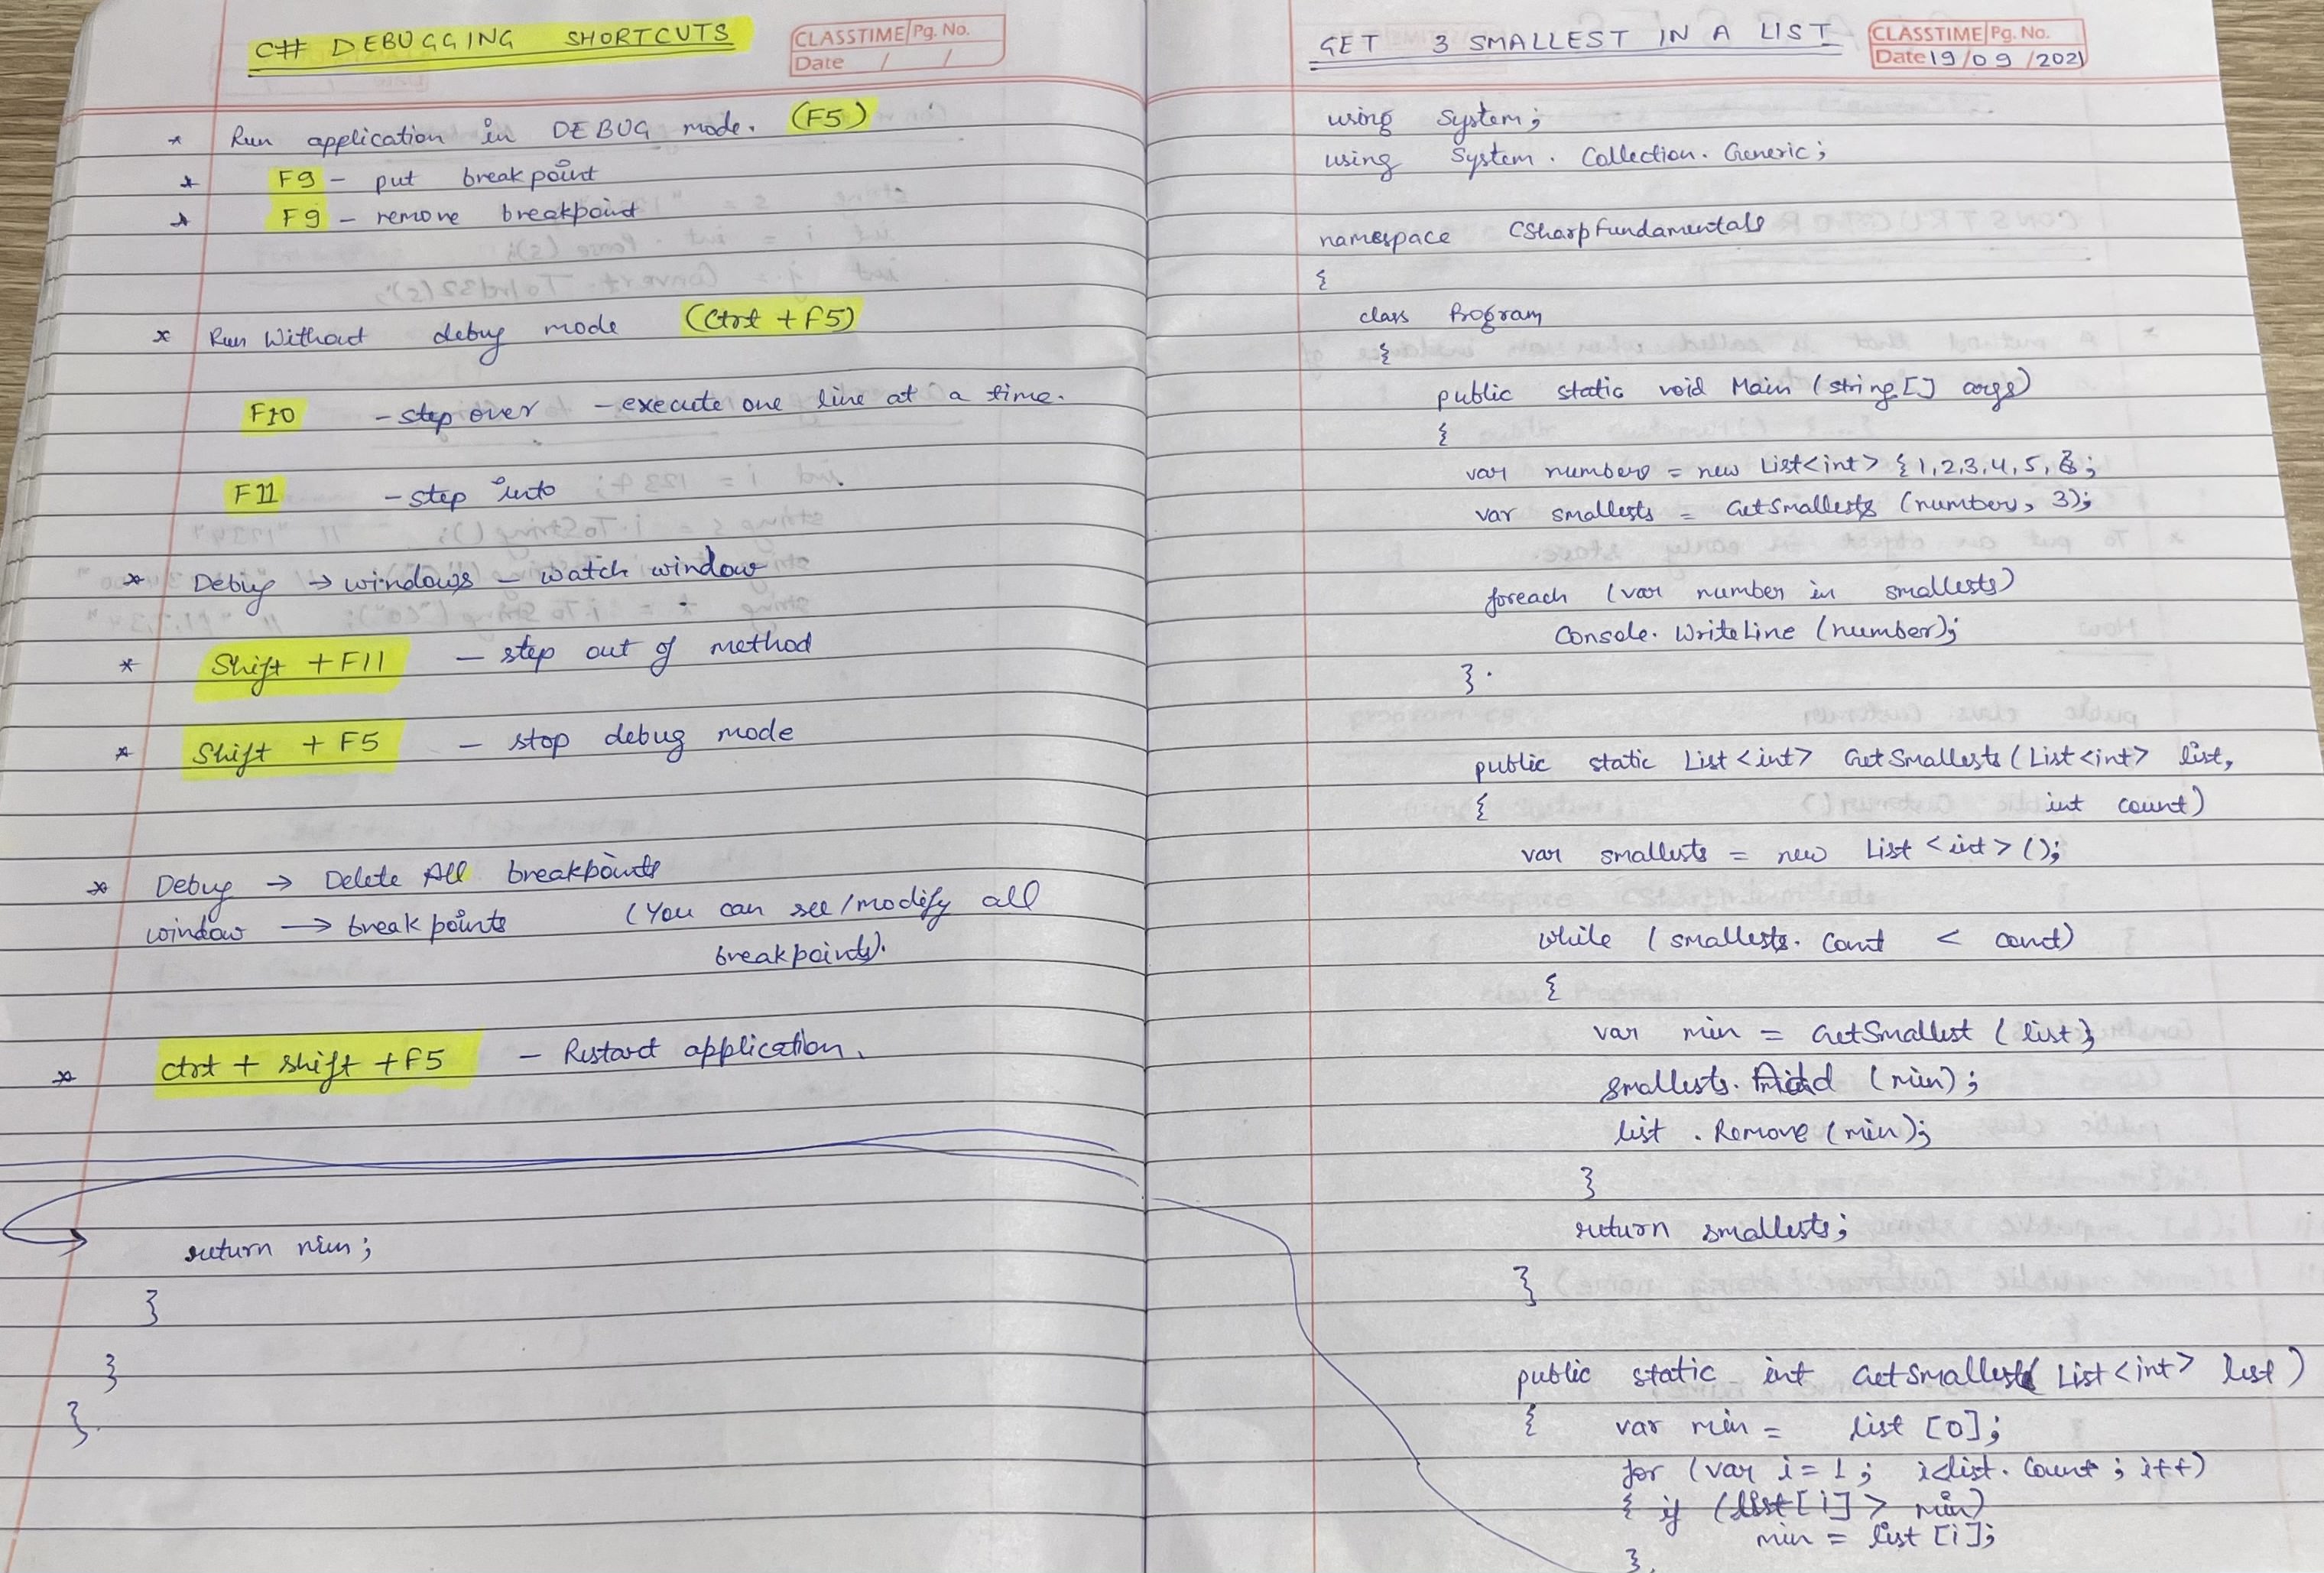 C# DEBUGGING SHORTCUTS
CLASSTIME Pg. No.
Date / /
* Run application in DEBUG mode. (F5)
* F9 - put breakpoint
* F9 - remove breakpoint
* Run Without debug mode (Ctrl + F5)
F10 - step over - execute one line at a time.
F11 - step into
* Debug → windows - watch window
* Shift + F11 - step out of method
* Shift + F5 - stop debug mode
* Debug → Delete All breakpoints
window → breakpoints (You can see/modify all
breakpoints).
* Ctrl + Shift + F5 - Restart application.
return min;
}
}
}.
GET 3 SMALLEST IN A LIST
CLASSTIME Pg. No.
Date 19/09/2021
using System;
using System. Collection. Generic;
namespace CSharpFundamentals
{
class Program
{
public static void Main (string[] args)
{
var numbers = new List<int> {1,2,3,4,5,6};
var smallests = GetSmallests (numbers, 3);
foreach (var number in smallests)
Console. WriteLine (number);
}.
public static List<int> GetSmallests (List<int> list,
{ int count)
var smallests = new List<int> ();
while (smallests. Count < count)
{
var min = GetSmallest (list);
smallests. Add (min);
list . Remove (min);
}
return smallests;
}
public static int GetSmallest( List<int> list )
{ var min = list [0];
for (var i = 1; i<list. Count ; i++)
{ if (list [i] > min)
min = list [i];
}.